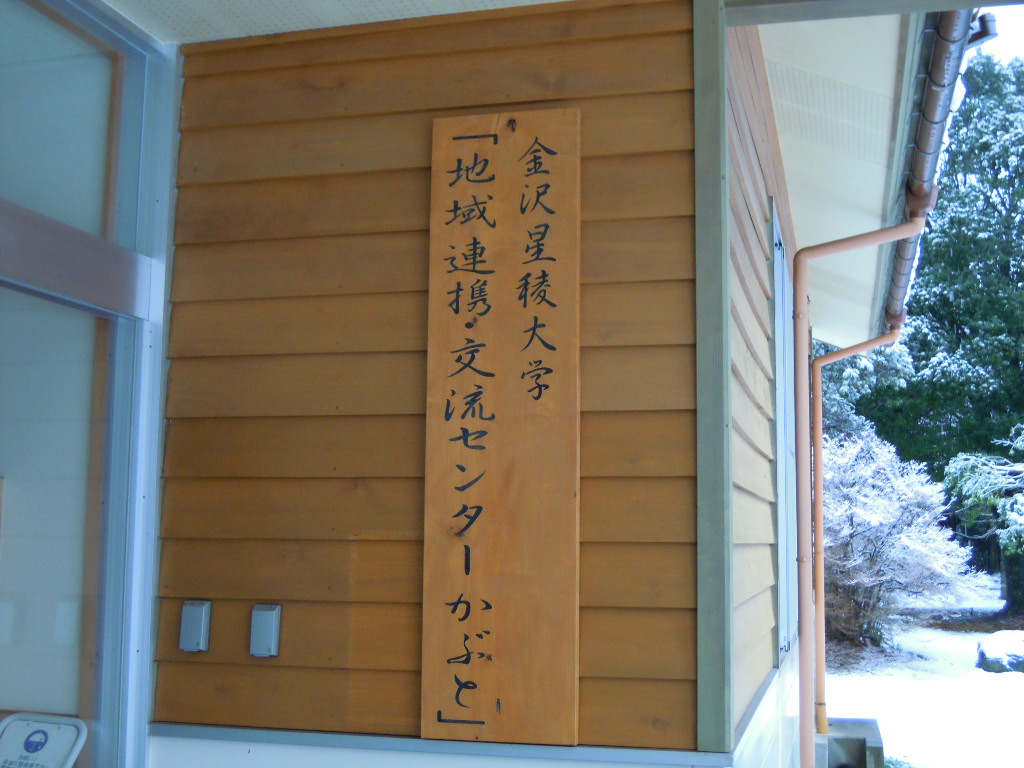 金沢星稜大学
「地域連携・交流センターかぶと」